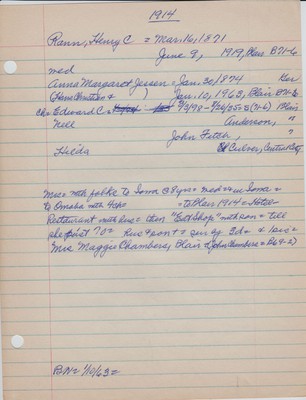 1914
Rann, Henry C = Mar. 16, 1871
June 9, 1919, Blair B71-6
med
Anna Margaret Jensen = Jan. 30/1874
(Hans Christian & ) Jan. 10, 1963, Blair B71-6
Ch = Edward C = 9/3/98 - 9/26/55 = B(71-6) Blair
Nell Anderson, "
John Fetch, "
Hilda Culver, Central City
Mrs = with folks to Iowa @ 8 yrs = med 4 in Iowa =
to Omaha with 4 chs = to Blair 1914 = Hotel
Restaurant with hus = then "Eat Shop" with son = till
she past 70 = Hus & son + = sur by 2 ds = & 1 sis =
Mrs Maggie Chambers, Blair (John Chambers = B69-2)
BN = 1/10/63 =